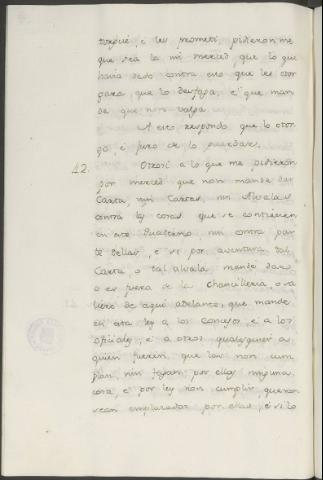 torgué, e les prometí, pidieron me
que sea la mi merced, que lo que
havia dado contra esto que les otor
gara, que lo desfaga, e que man
de que non valga.
A esto respondo que lo otor
go, e juro de lo guardar.
42. Otrosí a lo que me pidieron
por merced que non mande dar
Carta, nin Cartas, nin Alvalas
contra las cosas que se contienen
en este Quaderno nin contra par
te dellas, e si por aventura tal
Carta, o tal alvalá mandé dar
o es fuera de la Chancilleria, o sa
liere de aqui adelante, que mande
en esta ley a los concejos, e a los
oficiales, e a otros qualesquier a
quien fueren, que las non cum
plan, nin fagan por ellas ninguna
cosa, e por ley non cumplir que non
sean emplazados por ellas, e si lo